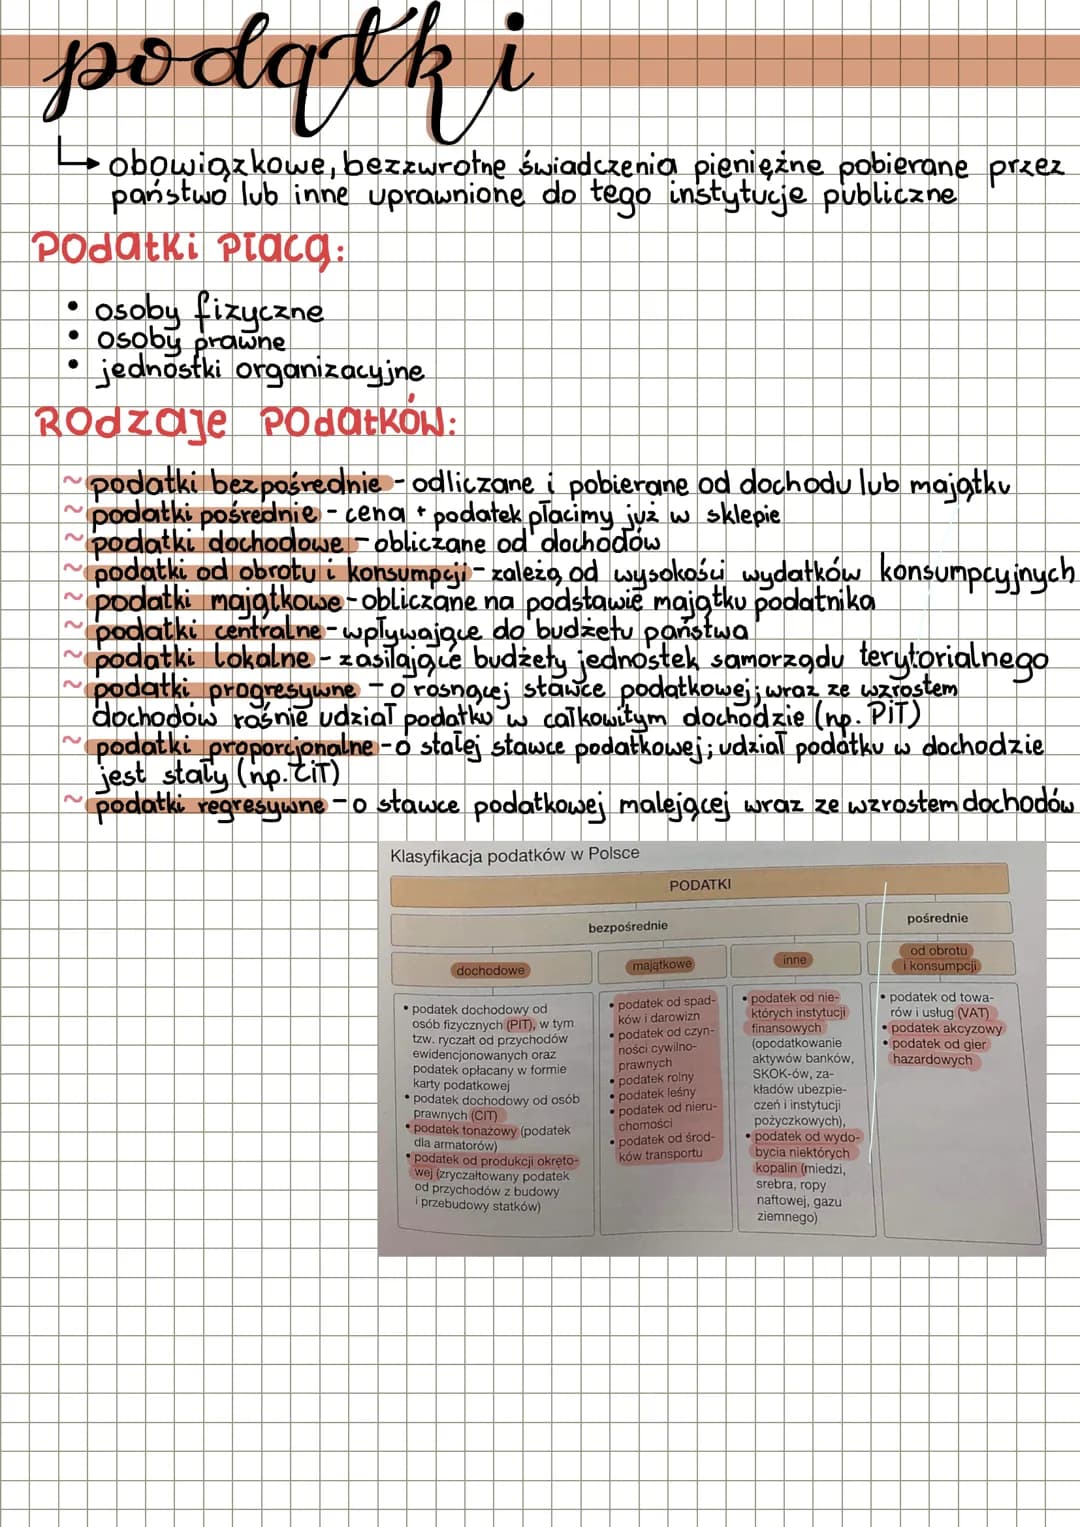 podatki
obowiązkowe, bezzwrotne świadczenia pieniężne pobierane przez
państwo lub inne uprawnione do tego instytucje publiczne
Podatki płacą:
• osoby fizyczne
• osoby prawne
• jednostki organizacyjne
Rodzaje podatków:
~ podatki bezpośrednie - odliczane i pobierane od dochodu lub majątku
~ podatki pośrednie - cena + podatek płacimy już w sklepie
~ podatki dochodowe - obliczane od dochodów
~ podatki od obrotu i konsumpcji - zależą od wysokości wydatków konsumpcyjnych
~ podatki majątkowe - obliczane na podstawie majątku podatnika
~ podatki centralne - wpływające do budżetu państwa
~ podatki lokalne - zasilające budżety jednostek samorządu terytorialnego
~ podatki progresywne - o rosnącej stawce podatkowej; wraz ze wzrostem
dochodów rośnie udział podatku w całkowitym dochodzie (np. PiT)
~ podatki proporcjonalne - o stałej stawce podatkowej; udział podatku w dochodzie
jest stały (np. CiT)
~ podatki regresywne - o stawce podatkowej malejącej wraz ze wzrostem dochodów
Klasyfikacja podatków w Polsce
PODATKI
bezpośrednie
pośrednie
dochodowe
majątkowe
inne
od obrotu
i konsumpcji
• podatek dochodowy od
osób fizycznych (PIT), w tym
tzw. ryczałt od przychodów
ewidencjonowanych oraz
podatek opłacany w formie
karty podatkowej
• podatek dochodowy od osób
prawnych (CIT)
• podatek tonażowy (podatek
dla armatorów)
• podatek od produkcji okręto-
wej (zryczałtowany podatek
od przychodów z budowy
i przebudowy statków)
• podatek od spad-
ków i darowizn
• podatek od czyn-
ności cywilno-
prawnych
• podatek rolny
• podatek leśny
• podatek od nieru-
chomości
• podatek od środ-
ków transportu
• podatek od nie-
których instytucji
finansowych
(opodatkowanie
aktywów banków,
SKOK-ów, za-
kładów ubezpie-
czeń i instytucji
pożyczkowych),
• podatek od wydo-
bycia niektórych
kopalin (miedzi,
srebra, ropy
naftowej, gazu
ziemnego)
• podatek od towa-
rów i usług (VAT)
• podatek akcyzowy
• podatek od gier
hazardowych